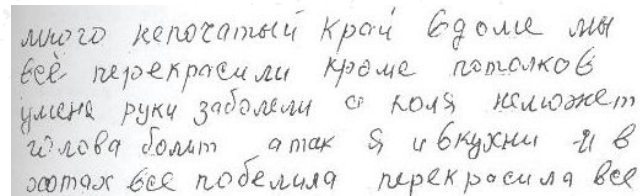 много непочатый край вдоме мы
всё перекрасили кроме потолков
уменя руки заболели а коля неможет
голова болит атак я ивкухни и в
хотах все побелила перекрасила все